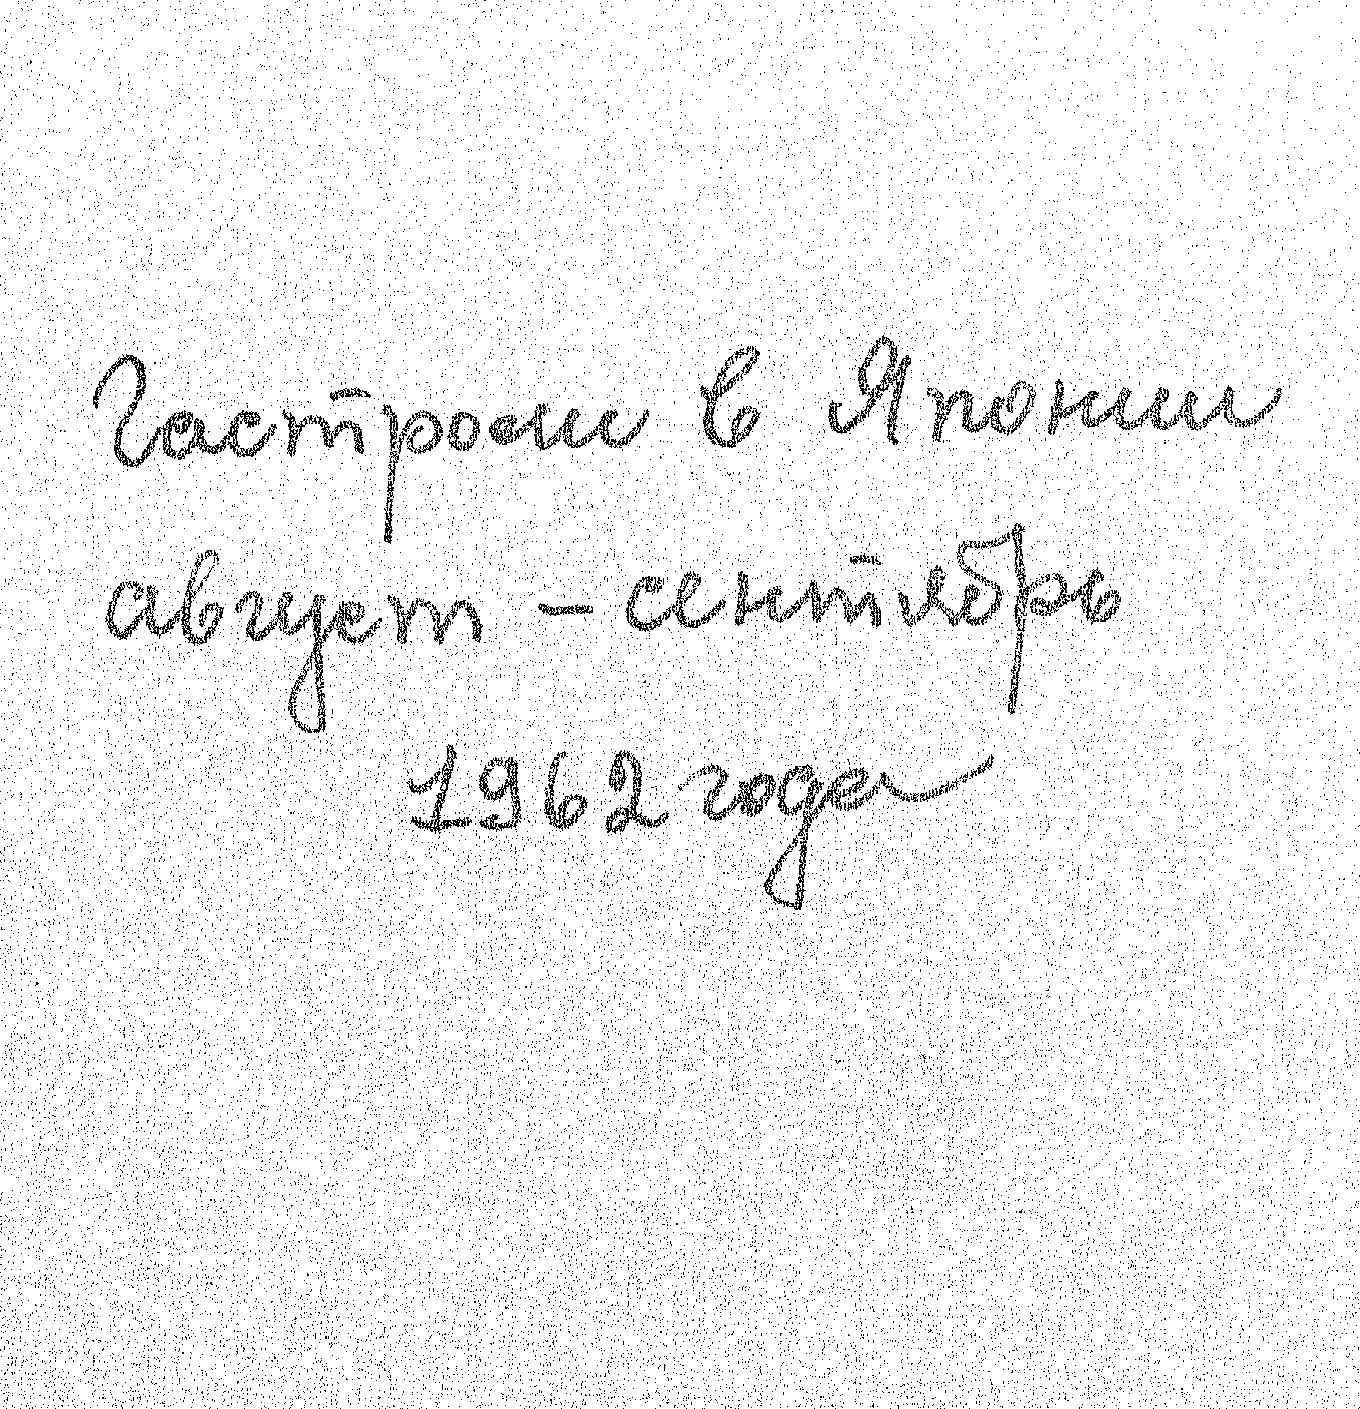 Гастроли в Японии
август – сентябрь
1962 года